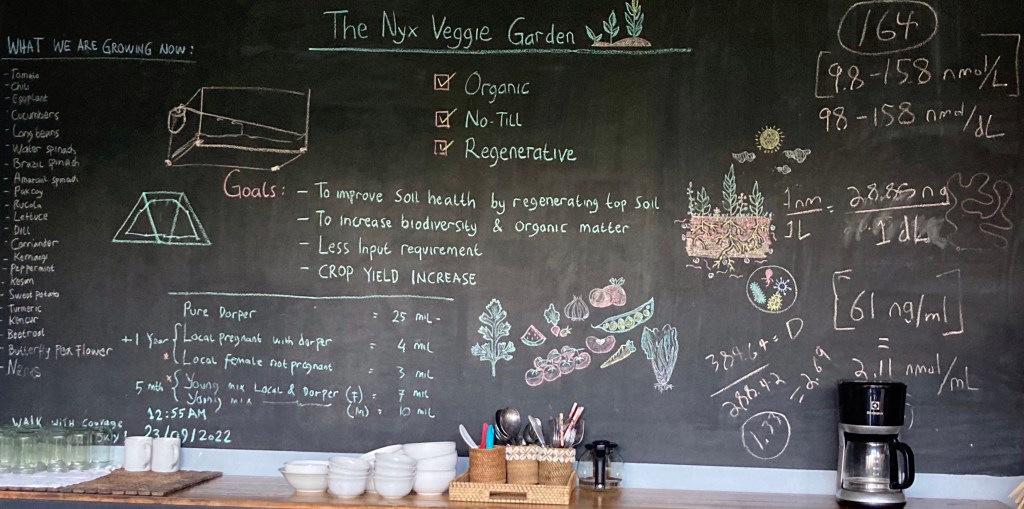 The Nyx Veggie Garden
WHAT WE ARE GROWING NOW:
- Tomato
- Chili
- Eggplant
- Cucumbers
- Long beans
- Water spinach
- Brazil spinach
- Amarant spinach
- Pak coy
- Rucola
- Lettuce
- Dill
- Corriander
- Kemangi
- Peppermint
- Kosm
- Sweet potato
- Turmeric
- Kencur
- Beetroot
- Butterfly Pea Flower
WALK WITH Courage
July
Organic
No-Till
Regenerative
Goals: - To improve soil health by regenerating top soil
- To increase biodiversity & organic matter
- Less Input requirement
- CROP YIELD INCREASE
Pure Dorper = 25 mil -
+1 Year Local pregnant with dorper = 4 mil
Local female not pregnant = 3 mil
5 mth Young mix Local & Dorper (f) = 7 mil
Young mix (m) = 10 mil
12:55AM
23/09/2022
164
[9.8-158 nmol/L]
98-158 nmol/dL
1nm/1L = 28.85 ng/1 dL
[61 ng/ml]
=
2.11 nmol/mL
384.64 = D
288.42
1.33